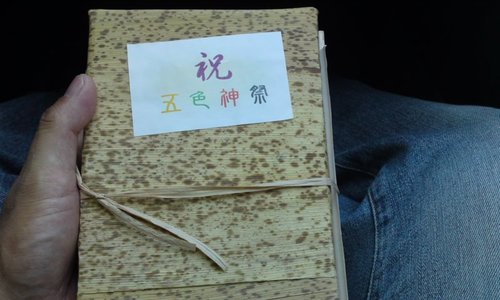 祝
五色神祭